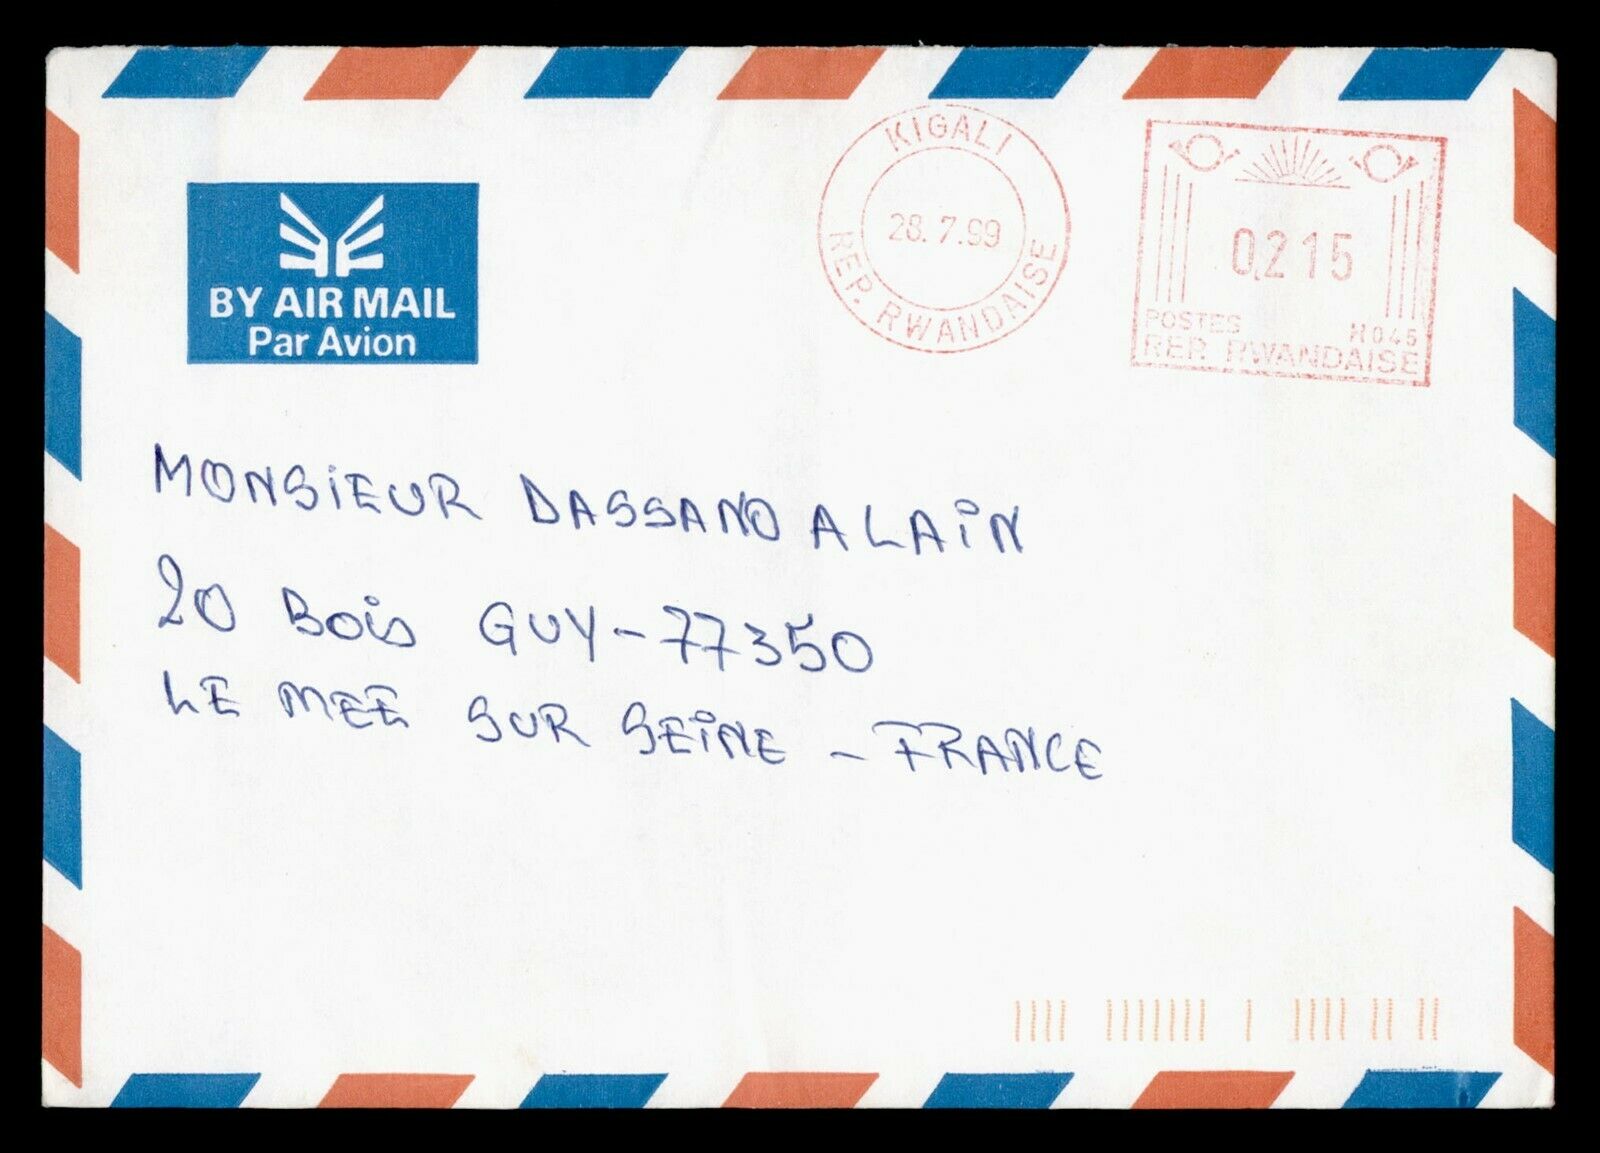 KIGALI
28. 7.99
REP. RWANDAISE
0,215
POSTES H045
REP. RWANDAISE
BY AIR MAIL
Par Avion
MONSIEUR DASSANO ALAIN
20 Bois GUY-77350
LE MEE SUR SEINE - FRANCE